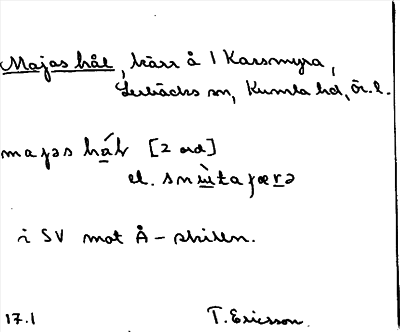 Majas hål, kärr å 1 Karsmyra,
Lerbäcks sn, Kumla hd, Ör. l.
majəs hál [2 ord]
el. snùtaɟærə
i SV mot Å-skilln.
17.1 T. Ericsson